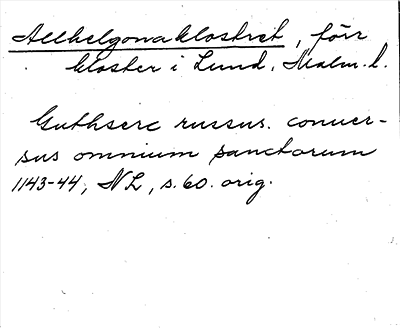 Allhelgonaklostret, förr
kloster i Lund, Malm. l.
Guthserc russus. conuer-
sus omnium sanctorum
1143-44, NL, s. 60. orig.